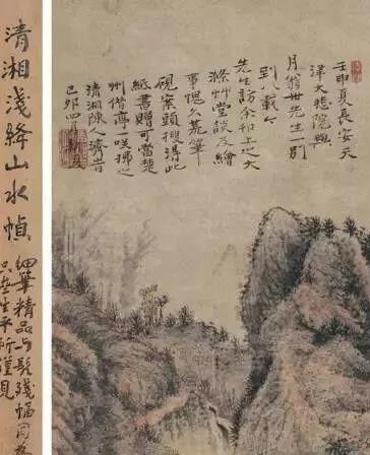 壬申夏長安天
津大悲院與
月翁世先生一別
到八載今
先生訪余和上之大
滌艸堂談及繪
事愧久荒筆
硯案頭搜得此
紙書贈可當楚
州咲拂之
清湘陳人濟昔
己卯四月
清湘淺絳山水幀
細筆精品与髡殘幅同為
生平所僅見